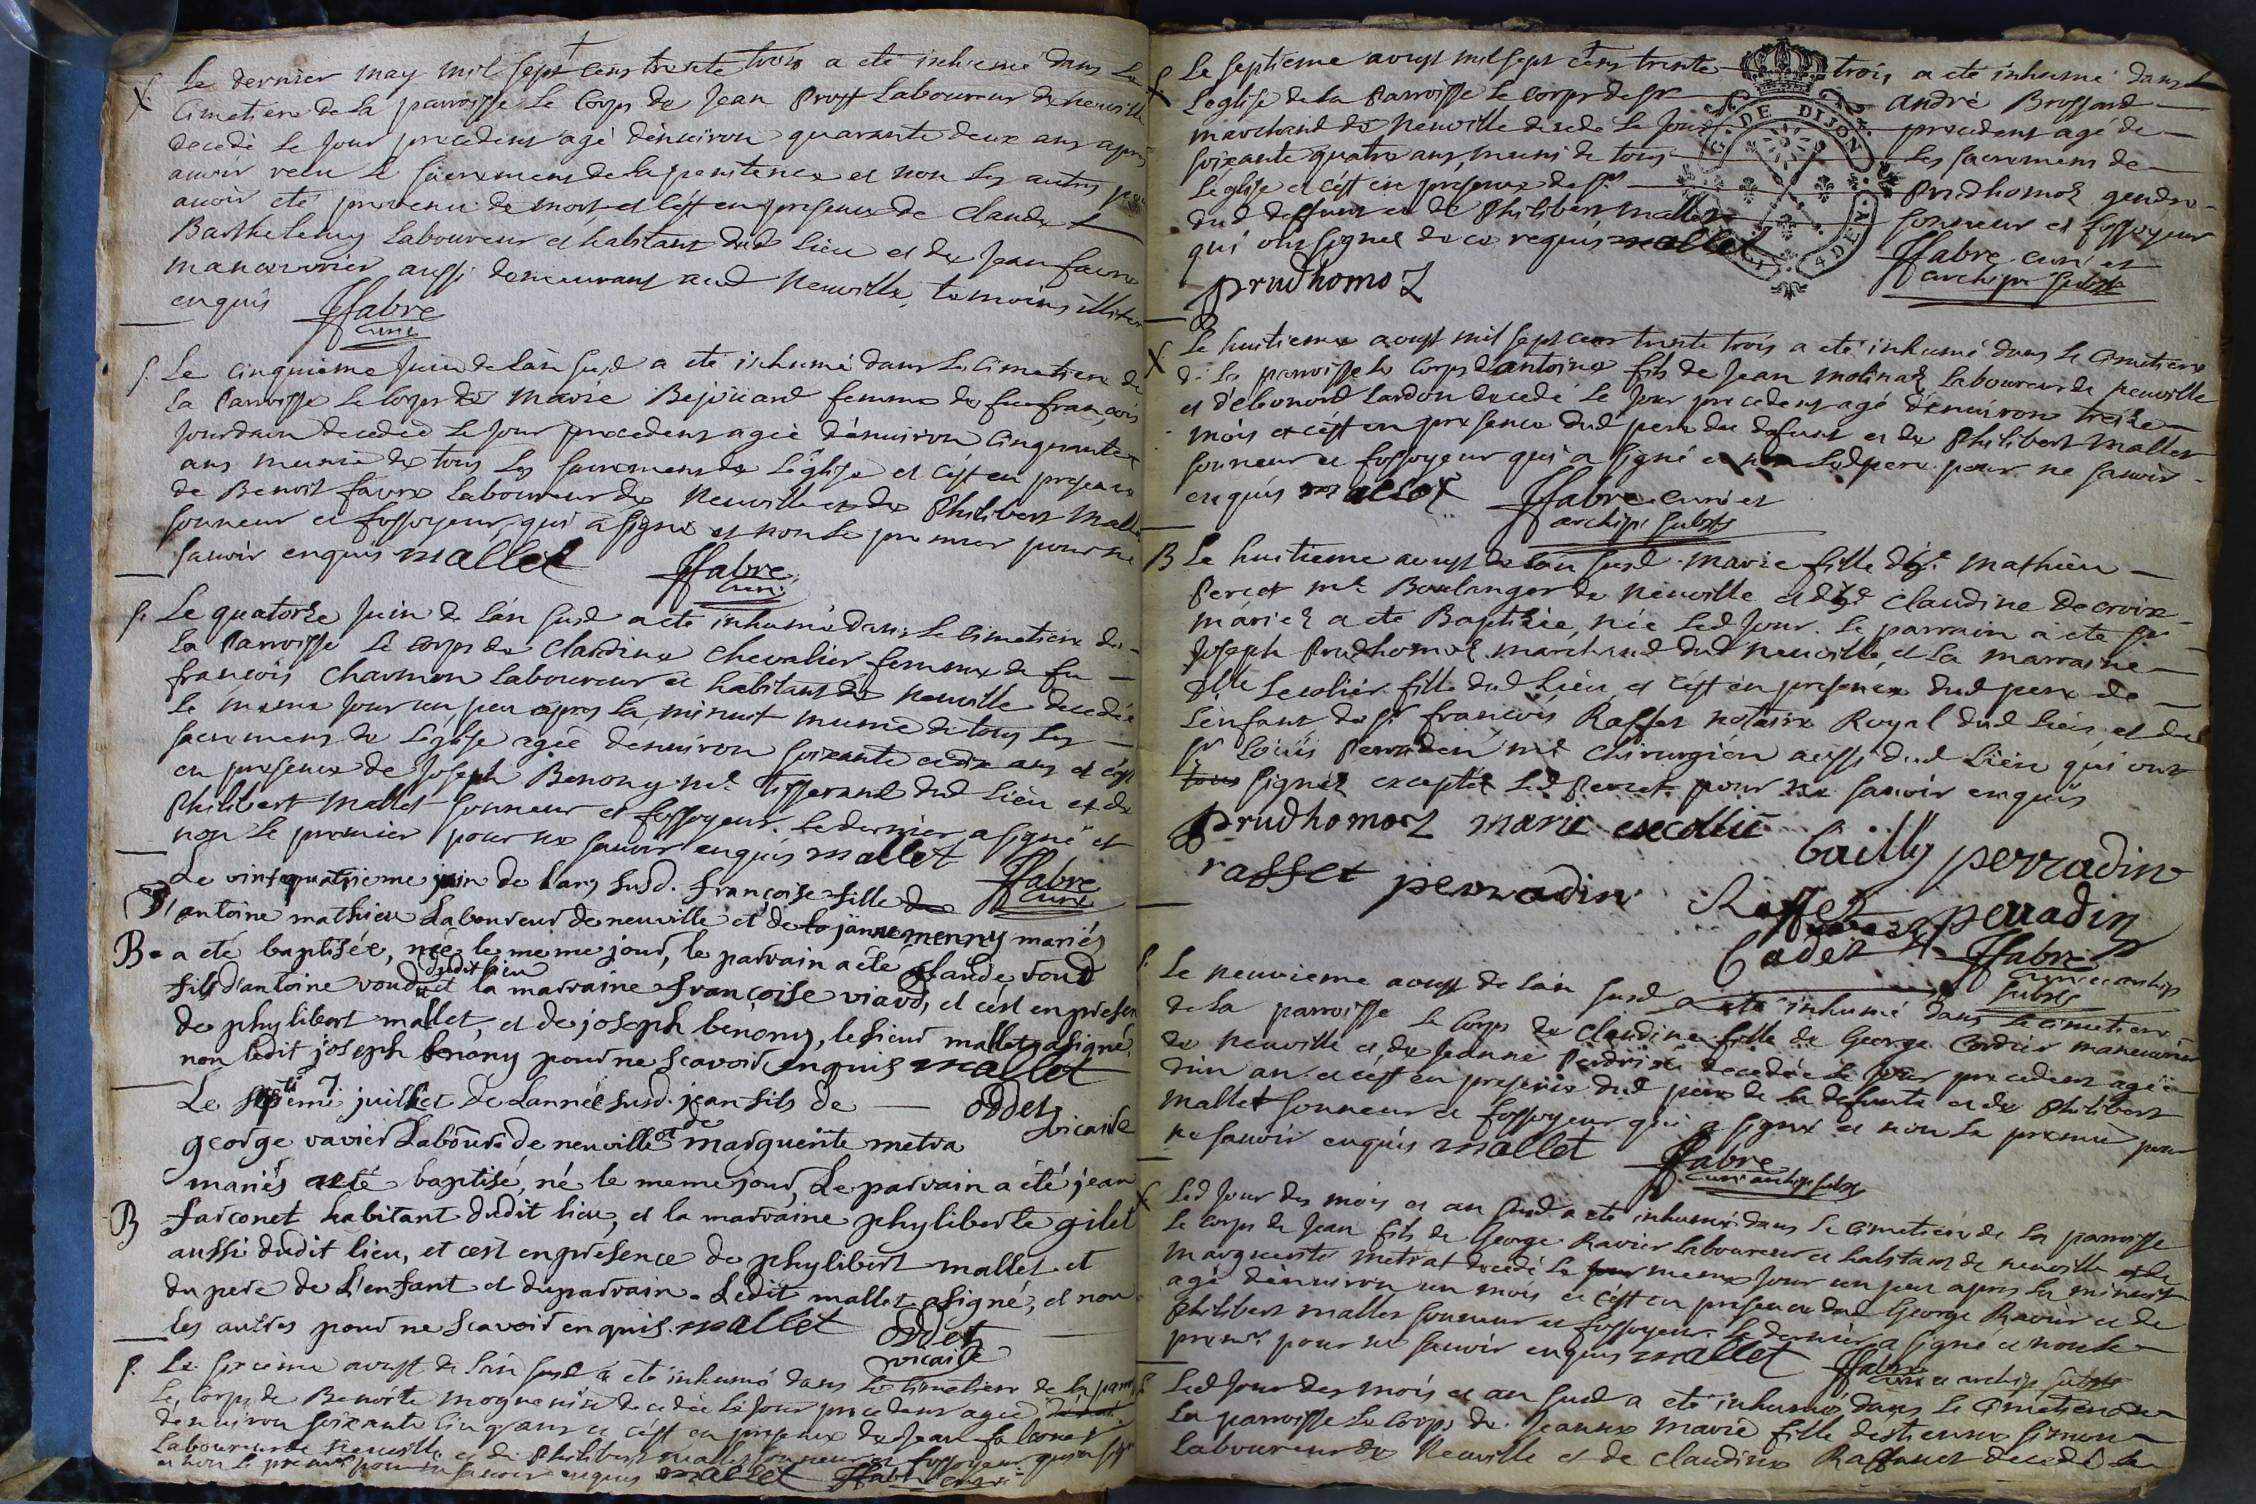 Le dernier may mil sept cens trente trois a eté inhumé dans le
Cimetiere de la parroisse le Corps de Jean Prost Laboureur de neuville
decedé le jour precedent agé d'enuiron quarante deux ans apres
auoir recu le sacrement de la penitence et non les autres pour
auoir eté prevenu de mort et c'est en presence de Claude
Barthelemy Laboureur et habitant dud lieu et de Jean faure
manouurier aussi demeurant aud Neuville, temoins illiteres
enquis ffabre
curé
S. Le cinquieme Juin de l'an susd a eté inhumé dans le cimetiere de
la Parroisse le corps de Marie Bejoüard femme de feu françois
Jourdain decedeé le jour precedent ageé d'enuiron cinquante
ans munie de tous les sacremens de l'église et c'est en presence
de Benoit faure Laboureur de Neuville et de Philibert Mallet
sonneur et fossoyeur, qui a signé et non le premier pour ne
sauoir enquis mallet ffabre
curé
S. Le quatorze Juin de l'an susd a eté inhumé dans le cimetiere de
la Parroisse le corps de Claudine Chevalier femme de feu
françois Charmon Laboureur et habitant de Neuville decedeé
le meme jour un peu apres la minuit munie de tous les
sacremens de l'église ageé d'enuiron soixante et dix ans et c'est
en presence de Joseph Benony me Tisserand dud lieu et de
Philibert Mallet sonneur et fossoyeur. le dernier a signé et
non le premier pour ne sauoir enquis mallet ffabre
curé
Le vintquatrieme juin de lan susd. françoise fille de
antoine mathieu Laboureur de neuville et de janne menny mariés
B. a eté baptisée, née le meme jour, le parrain a eté Claude voud
fils d'antoine voud dudit lieu et la marraine françoise viard, et c'est en presence
de phylibert mallet, et de joseph benony, le sieur mallet a signé,
non ledit joseph benony pour ne scavoir enquis mallet
Le septieme 7 juillet de Lannée susd. jean fils de — oddet
vicaire
george ravier Labour de neuville et de marguerite metra
mariés a eté baptisé, né le meme jour, Le parrain a été jean
B farconet habitant dudit lieu, et la marraine phyliberte gilet
aussi dudit lieu, et c'est en presence de phylibert mallet et
du pere de L'enfant et du parrain. Ledit mallet a signé, et non
les autres pour ne scavoir enquis. mallet oddet
vicaire
S. Le sixieme aoust de l'an susd a eté inhumé dans le Cimetiere de la parr
Le corps de Benoite decedée le jour precedent ageé
denuiron soixante cinq ans et c'est en presence de Jean falconet
Laboureur de Neuville et de Philibert mallet sonneur et fossoyeur qui a signé
et non le premier pour ne sauoir enquis mallet ffabre curé
S. Le septieme aoust mil sept cens trente trois a eté inhumé dans
L'eglise de la Parroisse le corps de Sr André Brossard
marchand de Neuville decedé le jour precedent agé de
soixante quatre ans, muni de tous les sacremens de
L'église et c'est en presence de Sr Prudhomoz gendre
dud deffunt et de Philibert Mallet sonneur et fossoyeur
qui ont signez de ce requis mallet ffabre curé et
prudhomoz archipr substs
DE DIJON
4 DEN.
X Le huitieme aoust mil sept cens trente trois a eté inhumé dans le Cimetiere
de la parroisse le Corps d'antoine fils de Jean Molinaz Laboureur de neuville
et d'Ebonord Lardon decedé le jour precedent agé d'enuiron treize
mois et c'est en presence dud pere du defunt et de Philibert Mallet
sonneur et fossoyeur qui a signé et non led pere pour ne sauoir
enquis mallet ffabre curé et
archipr substs
B Le huitieme aoust de l'an susd Marie fille de Sr Mathieu
Percet me Boulanger de Neuville et de Claudine Decroix
mariez a eté Baptisée, née led jour. le parrain a eté Sr
Joseph Prudhomoz marchand dud neuville, et la marraine
Dlle Lecolier fille dud lieu, et c'est en presence dud pere de
L'enfant de Sr françois Raffet notaire Royal dud lieu, et du
Sr Loüis Perradin me Chirurgien aussi dud lieu qui ont
tous signez excepté led Percet pour ne sauoir enquis
prudhomoz marie
bailly perradin
raffet perradin Raffet perradin
Cadet ffabre
curé et archip
substs
S. Le neuvieme aoust de l'an susd a eté inhumé dans le cimetiere
de la parroisse le Corps de Claudine fille de George Cordier manouurier
de Neuville et de Jeanne Perdrix decedée le jour precedent ageé
d'un an et c'est en presence dud pere de la defunte et de Philibert
Mallet sonneur et fossoyeur qui a signé et non le premier pour
ne sauoir enquis mallet ffabre
curé archip substs
X Led Jour des mois et an susd a eté inhumé dans le cimetiere de la parroisse
le corps de Jean fils de George Ravier Laboureur et habitant de neuville et de
Marguerite Metrat decedé le jour meme jour un peu apres la minuit
agé d'enuiron un mois et c'est en presence dud George Ravier et de
Philibert Mallet sonneur et fossoyeur. le dernier a signé et non le
premr pour ne sauoir enquis mallet ffabre
curé et archip substs
Led Jour des mois et an susd a eté inhumé dans le Cimetiere de
La parroisse le Corps de Jeanne Marie fille d'estienne Simon
Laboureur de Neuville et de Claudine Raffanet decedé le